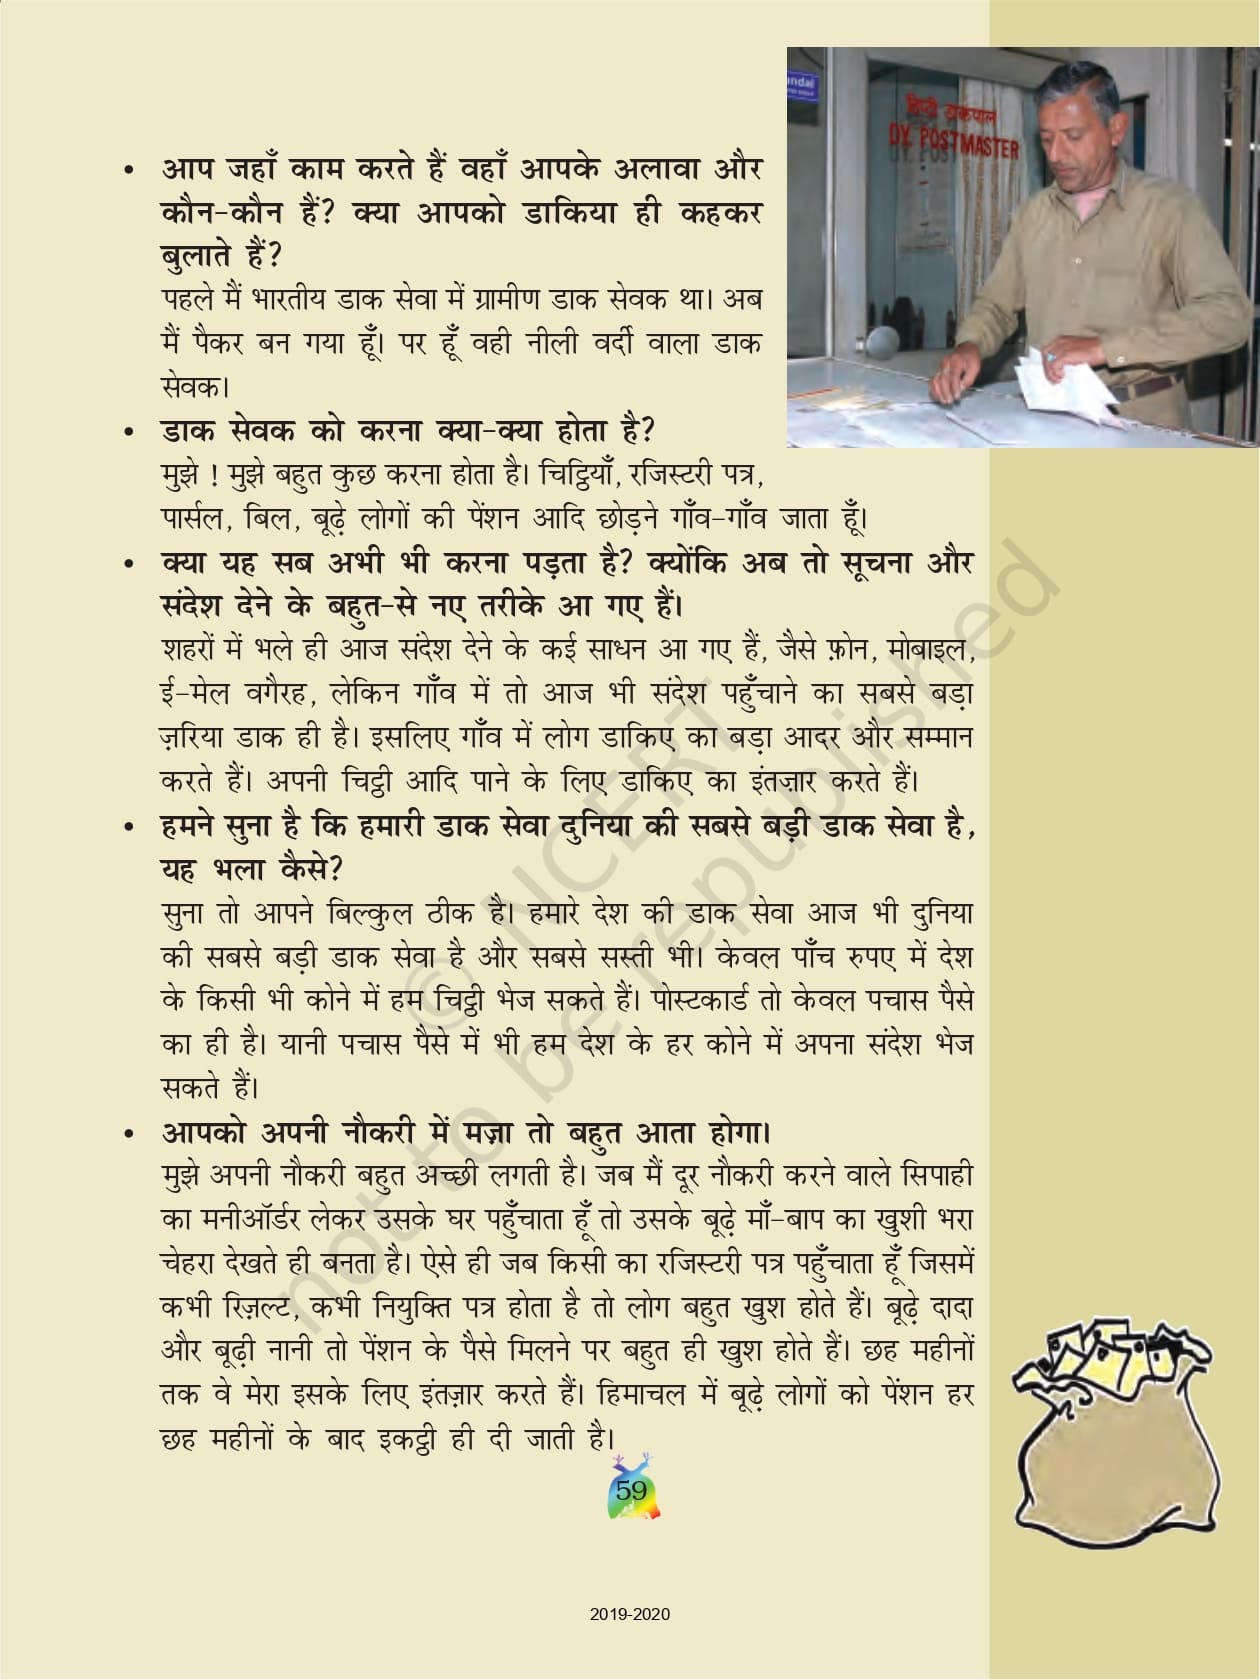 undai
डिप्टी डाकपाल
DY. POSTMASTER
• आप जहाँ काम करते हैं वहाँ आपके अलावा और
कौन-कौन हैं? क्या आपको डाकिया ही कहकर
बुलाते हैं?
पहले मैं भारतीय डाक सेवा में ग्रामीण डाक सेवक था। अब
मैं पैकर बन गया हूँ। पर हूँ वही नीली वर्दी वाला डाक
सेवक।
• डाक सेवक को करना क्या-क्या होता है?
मुझे ! मुझे बहुत कुछ करना होता है। चिट्ठियाँ, रजिस्टरी पत्र,
पार्सल, बिल, बूढ़े लोगों की पेंशन आदि छोड़ने गाँव-गाँव जाता हूँ।
• क्या यह सब अभी भी करना पड़ता है? क्योंकि अब तो सूचना और
संदेश देने के बहुत-से नए तरीके आ गए हैं।
शहरों में भले ही आज संदेश देने के कई साधन आ गए हैं, जैसे फ़ोन, मोबाइल,
ई-मेल वगैरह, लेकिन गाँव में तो आज भी संदेश पहुँचाने का सबसे बड़ा
ज़रिया डाक ही है। इसलिए गाँव में लोग डाकिए का बड़ा आदर और सम्मान
करते हैं। अपनी चिट्ठी आदि पाने के लिए डाकिए का इंतज़ार करते हैं।
• हमने सुना है कि हमारी डाक सेवा दुनिया की सबसे बड़ी डाक सेवा है,
यह भला कैसे?
सुना तो आपने बिल्कुल ठीक है। हमारे देश की डाक सेवा आज भी दुनिया
की सबसे बड़ी डाक सेवा है और सबसे सस्ती भी। केवल पाँच रुपए में देश
के किसी भी कोने में हम चिट्ठी भेज सकते हैं। पोस्टकार्ड तो केवल पचास पैसे
का ही है। यानी पचास पैसे में भी हम देश के हर कोने में अपना संदेश भेज
सकते हैं।
• आपको अपनी नौकरी में मज़ा तो बहुत आता होगा।
मुझे अपनी नौकरी बहुत अच्छी लगती है। जब मैं दूर नौकरी करने वाले सिपाही
का मनीऑर्डर लेकर उसके घर पहुँचाता हूँ तो उसके बूढ़े माँ-बाप का खुशी भरा
चेहरा देखते ही बनता है। ऐसे ही जब किसी का रजिस्टरी पत्र पहुँचाता हूँ जिसमें
कभी रिज़ल्ट, कभी नियुक्ति पत्र होता है तो लोग बहुत खुश होते हैं। बूढ़े दादा
और बूढ़ी नानी तो पेंशन के पैसे मिलने पर बहुत ही खुश होते हैं। छह महीनों
तक वे मेरा इसके लिए इंतज़ार करते हैं। हिमाचल में बूढ़े लोगों को पेंशन हर
छह महीनों के बाद इकट्ठी ही दी जाती है।
© NCERT
not to be republished
59
2019-2020